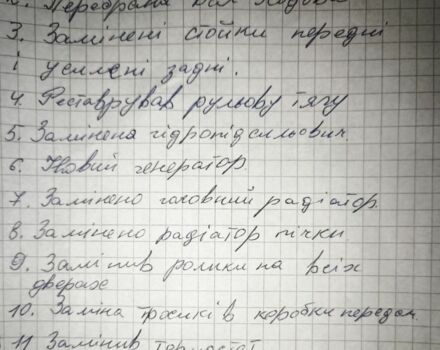 2. Перебрана вся ходова
3. Замінені стойки передні
і усилені задні.
4. Реставрував рульову тягу
5. Замінена гідропідсилювач
6. Новий генератор
7. Замінено головний радіатор
8. Замінено радіатор пічки
9. Замінив ролики на всіх
дверах
10. Заміна тросиків коробки передач
11. Замінив термостат